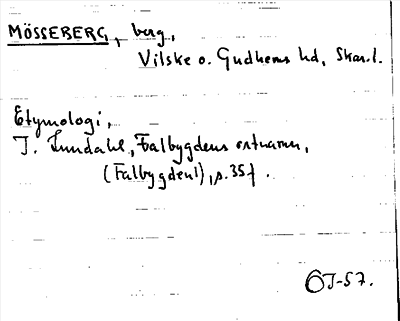 MÖSSEBERG, berg,
Vilske o. Gudhems hd, Skar.l.
Etymologi,
I. Lundahl, Falbygdens ortnamn,
(Falbygden 1), s. 35 f.
ÖJ-57.